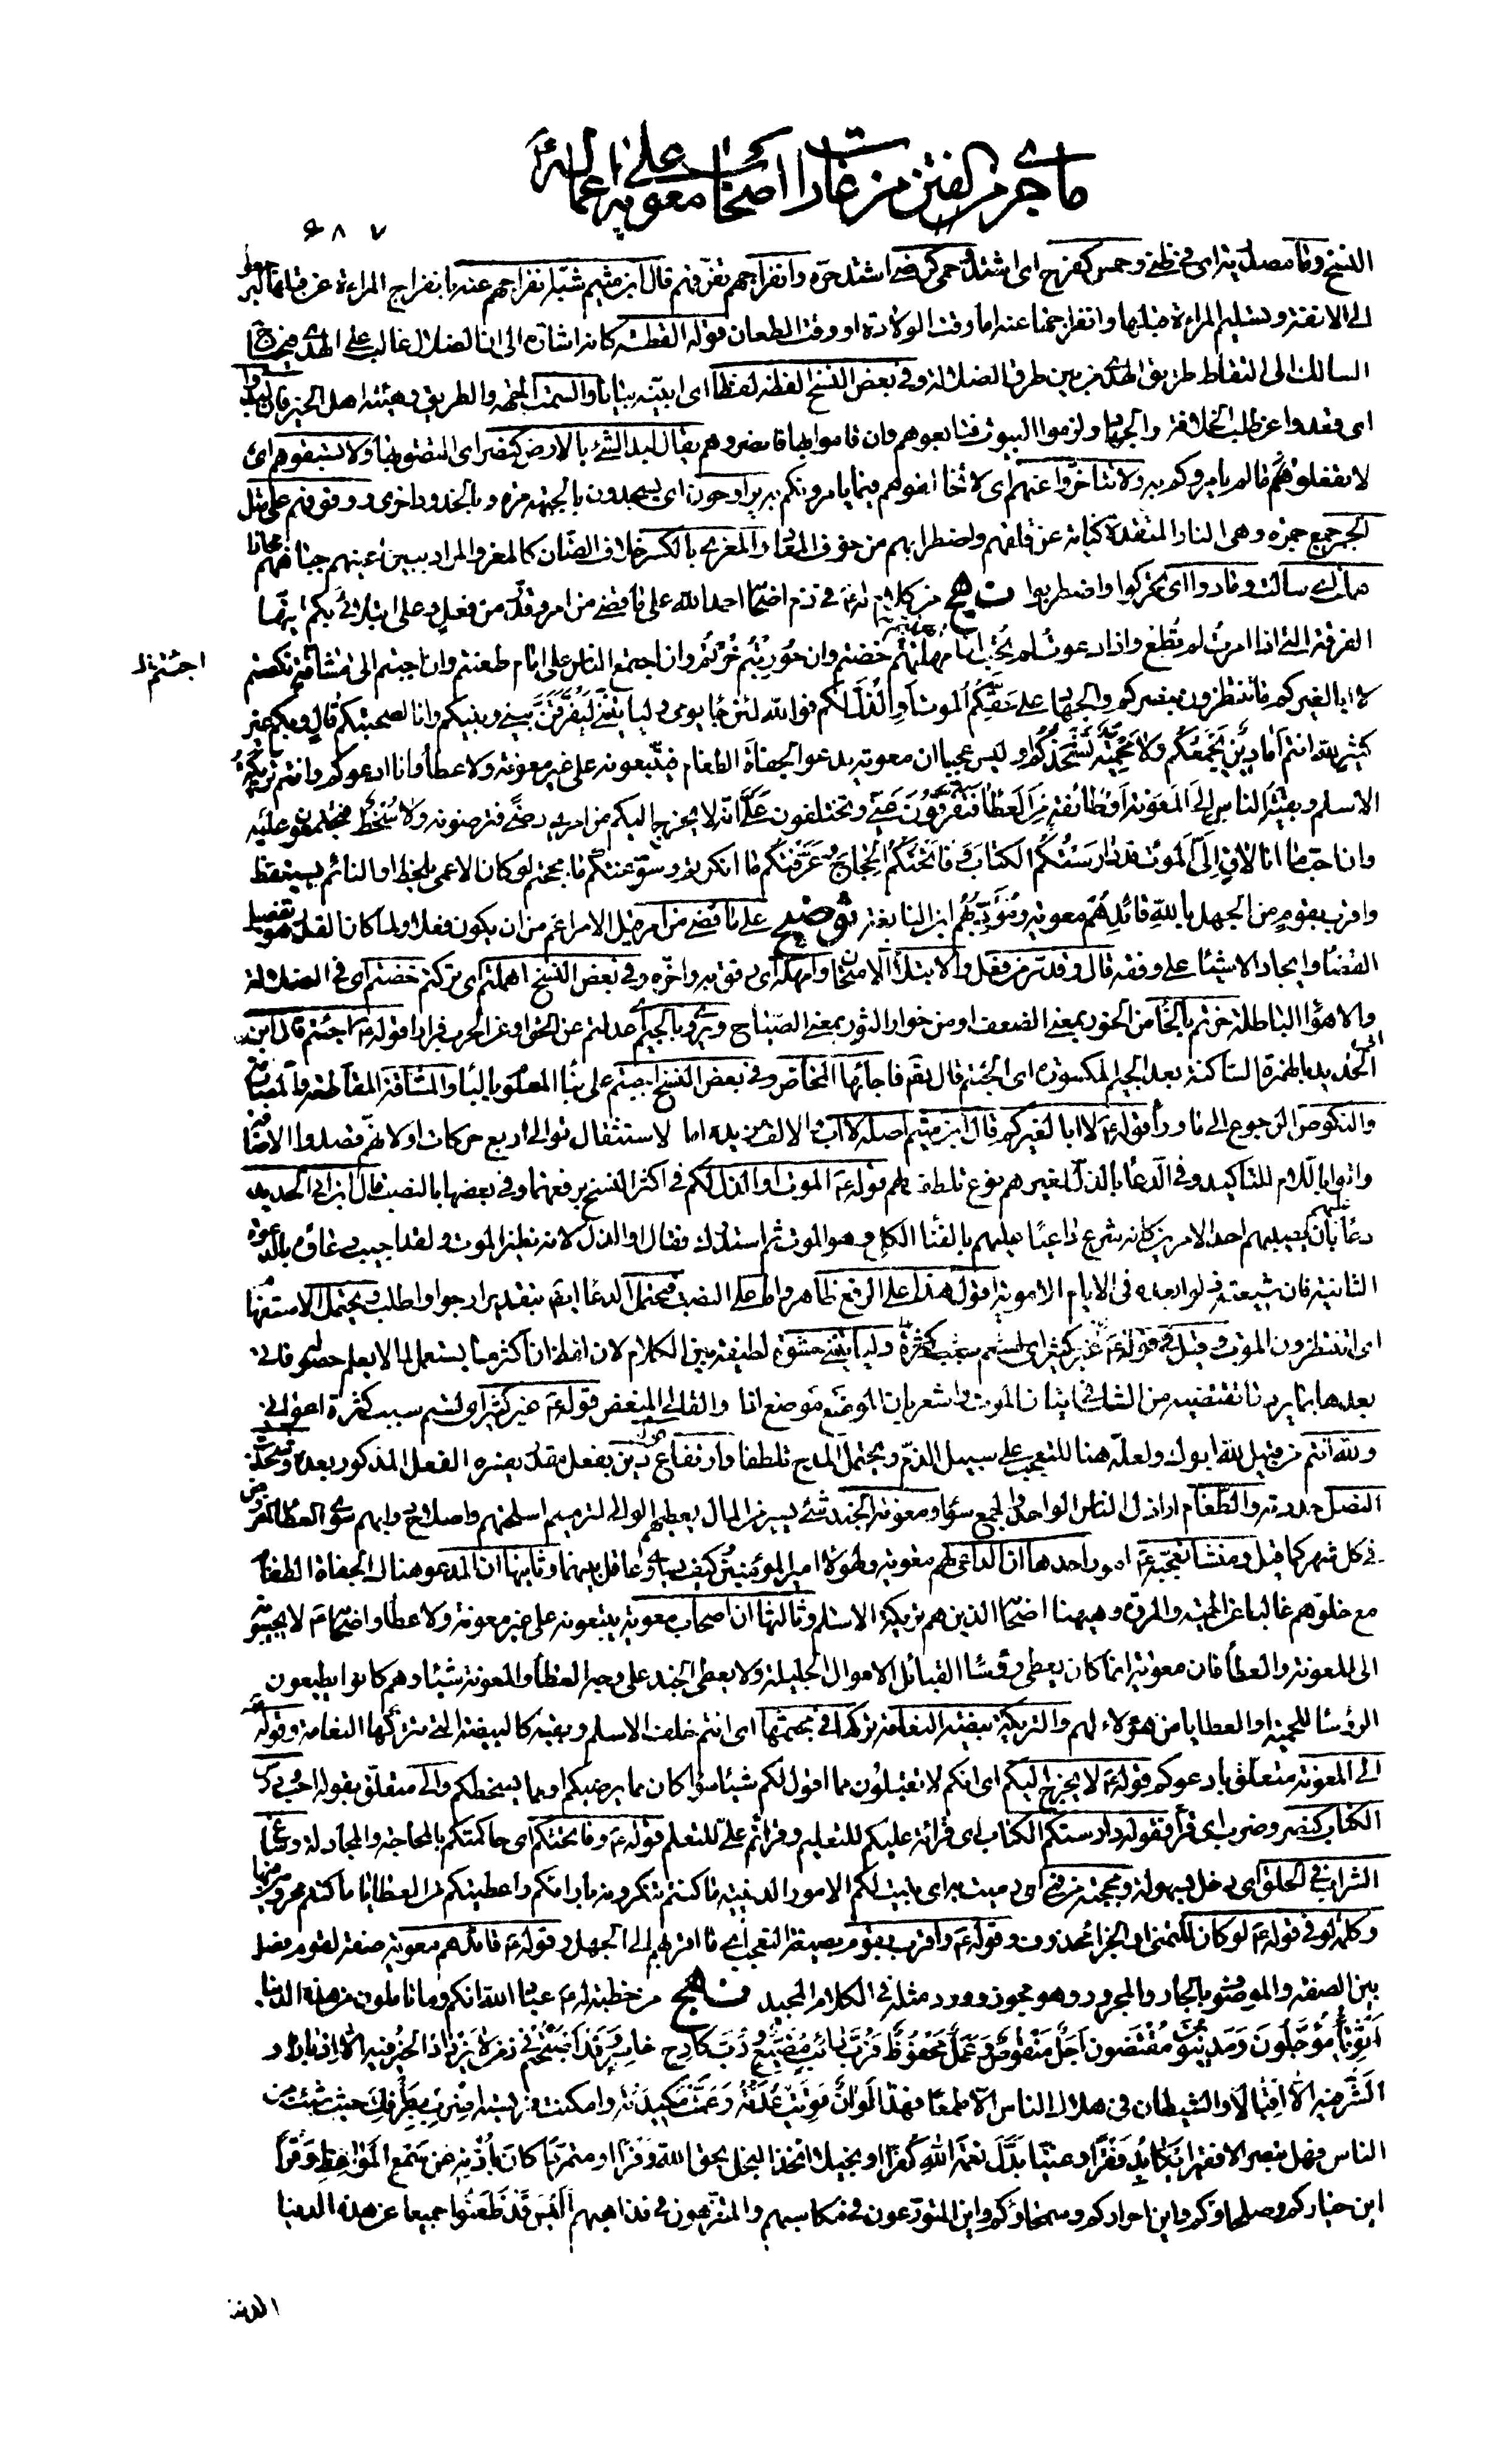 ما جرى من الفتن من غارات اصحاب معوية على اعماله
٦٨٧
النسخ وما مصدرية اى فى ظنى وحمس كفرح اى اشتد وحمى كرضى اشتد حره وانفراجهم تفرقهم قال ابن ميثم شبه انفراجهم عنه بانفراج المراة عن قبلها ليرجعوا
الى الانفة وتسليم المراءة قبلها وانفراجها عنه اما وقت الولادة او وقت الطعان قوله القطه كانه اشارة الى ان الضلال غالب على الهدى فيحتاج
السالك الى التقاط طريق الهدى من بين طرق الضلالة وفى بعض النسخ الفظه لفظا اى ابينه بيانا والسمت الجهة والطريق وهيئة اهل الخير فان لبدوا
اى قعدوا عن طلب الخلافة والجهاد ولزموا البيوت فتابعوهم وان قاموا بها فانصروهم يقال لبد الشئ بالارض كنصر اى التصق بها ولا تسبقوهم اى
لا تفعلوا ما لم يامروكم به ولا تتاخروا عنهم اى لا تخالفوهم فيما يامرونكم به يراوحون اى يسجدون بالجبهة مرة وبالخدود اخرى ووقوفهم على مثل
الجمر جمع جمرة وهى النار المتقدة كناية عن قلقهم واضطرابهم من خوف المعاد والمعزى بالكسر خلاف الضان كالمعز والمراد ببين اعينهم جباههم مجازا
هملت اى سالت ومادوا اى تحركوا واضطربوا نهج من كلام له ع فى ذم اصحابه احمد الله على ما قضى من امر وقدر من فعل وعلى ابتلائى بكم ايتها
الفرقة التى اذا امرت لم تطع واذا دعوت لم تجب ان امهلتم خضتم وان حوربتم خرتم وان اجتمع الناس على امام طعنتم وان اجبتم الى مشاقة نكصتم
اجئتم ظ
لا ابا لغيركم ما تنتظرون بنصركم والجهاد على حقكم الموت او الذل لكم فوالله لئن جاء يومى وليا تينى ليفرقن بينى وبينكم وانا لصحبتكم قال وبكم غير
كثير لله انتم اما دين يجمعكم ولا حمية تشحذكم او ليس عجيبا ان معوية يدعو الجفاة الطغام فيتبعونه على غير معونة ولا عطاء وانا ادعوكم وانتم تريكة
الاسلام وبقية الناس الى المعونة او طائفة من العطاء فتفرقون عنى وتختلفون على انه لا يخرج اليكم من امرى رضى فترضونه ولا سخط فتجتمعون عليه
وان احب ما انا لاق الى الموت قد دارستكم الكتاب وفاتحتكم الحجاج وعرفتكم ما انكرتم وسوغتكم ما مججتم لو كان الاعمى يلحظ او النائم يستيقظ
واقرب بقوم من الجهل بالله قائدهم معوية ومؤدبهم ابن النابغة توضيح على ما قضى من امر قيل الامر اعم من ان يكون فعلا ولما كان القدر هو تفصيل
القضاء وايجاد الاشياء على وفقه قال وقدر من فعل والابتلاء الامتحان وامهله اى رفق به واخره وفى بعض النسخ اهملتم اى تركتم خضتم اى فى الضلالة
والاهواء الباطلة خرتم بالخاء من الخور بمعنى الضعف او من خوار الثور بمعنى الصياح ويروى بالجيم اى عدلتم عن الحق او عن الحرب فرارا قوله ع اجئتم قال ابن ابى
الحديد بالهمزة الساكنة بعد الجيم المكسورة اى الجئتم قال تعم فاجائها المخاض وفى بعض النسخ اجبتم على بناء المعلوم بالباء والمشاقة المقاطعة والمصارمة
والنكوص الرجوع الى ما وراء قوله ع لا ابا لغيركم قال ابن ميثم اصله لا اب والالف مزيدة اما لاستثقال توالى اربع حركات او لانهم قصدوا الاضافة
واتوا باللام للتاكيد وفى الدعاء بالذل لغيرهم نوع تلطف لهم قوله ع الموت او الذل لكم فى اكثر النسخ برفعهما وفى بعضها بالنصب قال ابن ابى الحديد
دعاء بان يصيبهم احد الامرين كانه شرع داعيا عليهم بالفناء الكلى وهو الموت ثم استدرك فقال او الذل لانه نظير الموت ولقد اجيب دعاؤه بالدعوة
الثانية فان شيعته ذلوا بعده فى الايام الاموية اقول هذا على الرفع ظاهر واما على النصب فيحتمل الدعاء ايضم بتقدير ارجوا واطلب ويحتمل الاستفهام
اى اتنتظرون الموت وقيل فى قوله ع غير كثير اى لستم سبب كثرة وليا تينى حشوة لطيفة بين الكلام لان لفظة ان اكثر ما يستعمل لما لا يعلم حصوله فاتى
بعدها بما يرد ما تقتضيه من الشك فى اتيان الموت واشعر بان الموضع موضع اذا والقالى المبغض قوله ع غير كثير اى لستم سبب كثرة اعوانى
ولله انتم من قبيل لله ابوك ولعله هنا للتعجب على سبيل الذم ويحتمل المدح تلطفا وارتفاع دين بفعل مقدر يفسره الفعل المذكور بعده وشحذت
النصل حددته والطغام اراذل الناس الواحد والجمع سواء ومعونة الجند شئ يسير من المال يعطيهم الوالى لترميم اسلحتهم واصلاح دابهم سوى العطاء المفروض
فى كل شهر كما قيل ومنشا تعجبه ع امور احدها ان الداعى لهم معوية ولهؤلاء امير المؤمنين كيف يساوى عاقل بينهما وثانيها ان المدعو هنالك الجفاة الطغام
مع خلوهم غالبا عن الحمية والمروة وهيهنا اصحابه الذين هم تريكة الاسلام وثالثها ان اصحاب معوية يتبعونه على غير معونة ولا عطاء واصحابه ع لا يجيبونه
الى المعونة والعطاء فان معوية انما كان يعطى رؤساء القبائل الاموال الجليلة ولا يعطى الجند على وجه العطاء والمعونة شيئا وهم كانوا يطيعون
الرؤساء للحمية او العطايا من هؤلاء لهم والتريكة بيضة النعامة تركها فى مجثمها اى انتم خلف الاسلام وبقيته كالبيضة التى تتركها النعامة وقوله
الى المعونة متعلق بادعوكم قوله ع لا يخرج اليكم اى انكم لا تقبلون مما اقول لكم شيئا سواء كان مما يرضيكم او مما يسخطكم والى متعلق بقوله احب ودرس
الكتاب كنصر وضرب اى قراه فقوله دارستكم الكتاب اى قراته عليكم للتعليم وقراتم على للتعلم قوله ع وفاتحتكم اى حاكمتكم بالمحاجة والمجادلة وساغ
الشراب فى الحلق اى دخل بسهولة ومججته من فى اى رميت به اى بينت لكم الامور الدينية ما كنتم تنكرونه بارائكم واعطيتكم من العطايا ما كنتم محرومين منها
وكلمة لو فى قوله ع لو كان للتمنى او الجزاء محذوف وقوله ع واقرب بقوم بصيغة التعجب اى ما اقربهم الى الجهل وقوله ع قائدهم معوية صفة لقوم فصل
بين الصفة والموصوف بالجار والمجرور وهو مجوز وورد مثله فى الكلام المجيد نهج من خطبة له ع عباد الله انكم وما تاملون من هذه الدنيا
اثوياء مؤجلون ومدينون مقتضون اجل منقوص وعمل محفوظ فرب دائب مضيع ورب كادح خاسر قد اصبحتم فى زمن لا يزداد الخير فيه الا ادبارا و
الشر فيه الا اقبالا والشيطان فى هلاك الناس الا طمعا فهذا اوان قويت عدته وعمت مكيدته وامكنت فريسته اضرب بطرفك حيث شئت من
الناس فهل تبصر الا فقيرا يكابد فقرا او غنيا بدل نعمة الله كفرا او بخيلا اتخذ البخل بحق الله وفرا او متمردا كان باذنه عن سمع المواعظ وقرا
اين خياركم وصلحاؤكم واين احراركم وسمحاؤكم واين المتورعون فى مكاسبهم والمتنزهون فى مذاهبهم اليس قد ظعنوا جميعا عن هذه الدنيا
الدنية